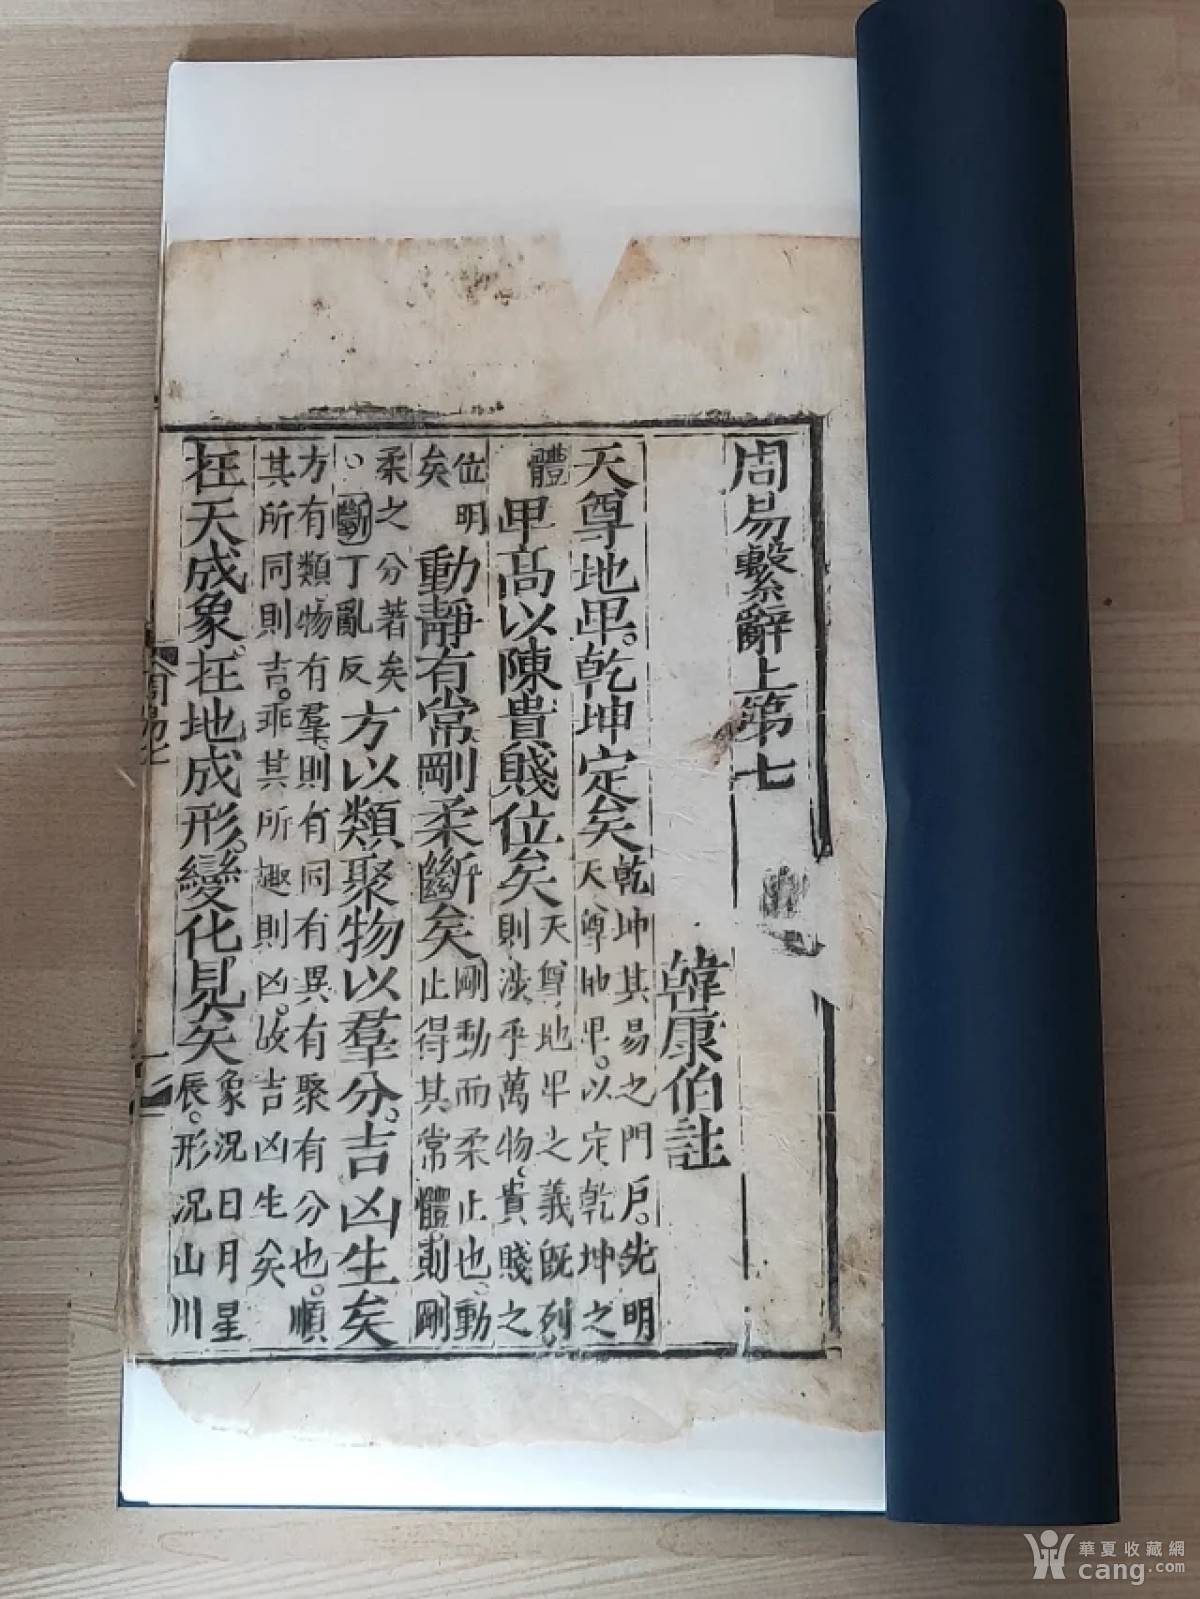 周易繫辭上第七
韓康伯註
天尊地卑。乾坤定矣
乾坤其易之門戶。先明
天尊地卑。以定乾坤之
體
卑高以陳貴賤位矣
天尊地卑之義旣列
則涉乎萬物。貴賤之
位明
矣
動靜有常剛柔斷矣
剛動而柔止也。動
止得其常體則剛
柔之分著矣
。斷丁亂反
方以類聚物以羣分。吉凶生矣
方有類。物有羣。則有同有異有聚有分也。順
其所同則吉。乖其所趣則凶。故吉凶生矣
在天成象。在地成形。變化見矣
象況日月星
辰。形況山川
周易七
一
華夏收藏網
cang.com